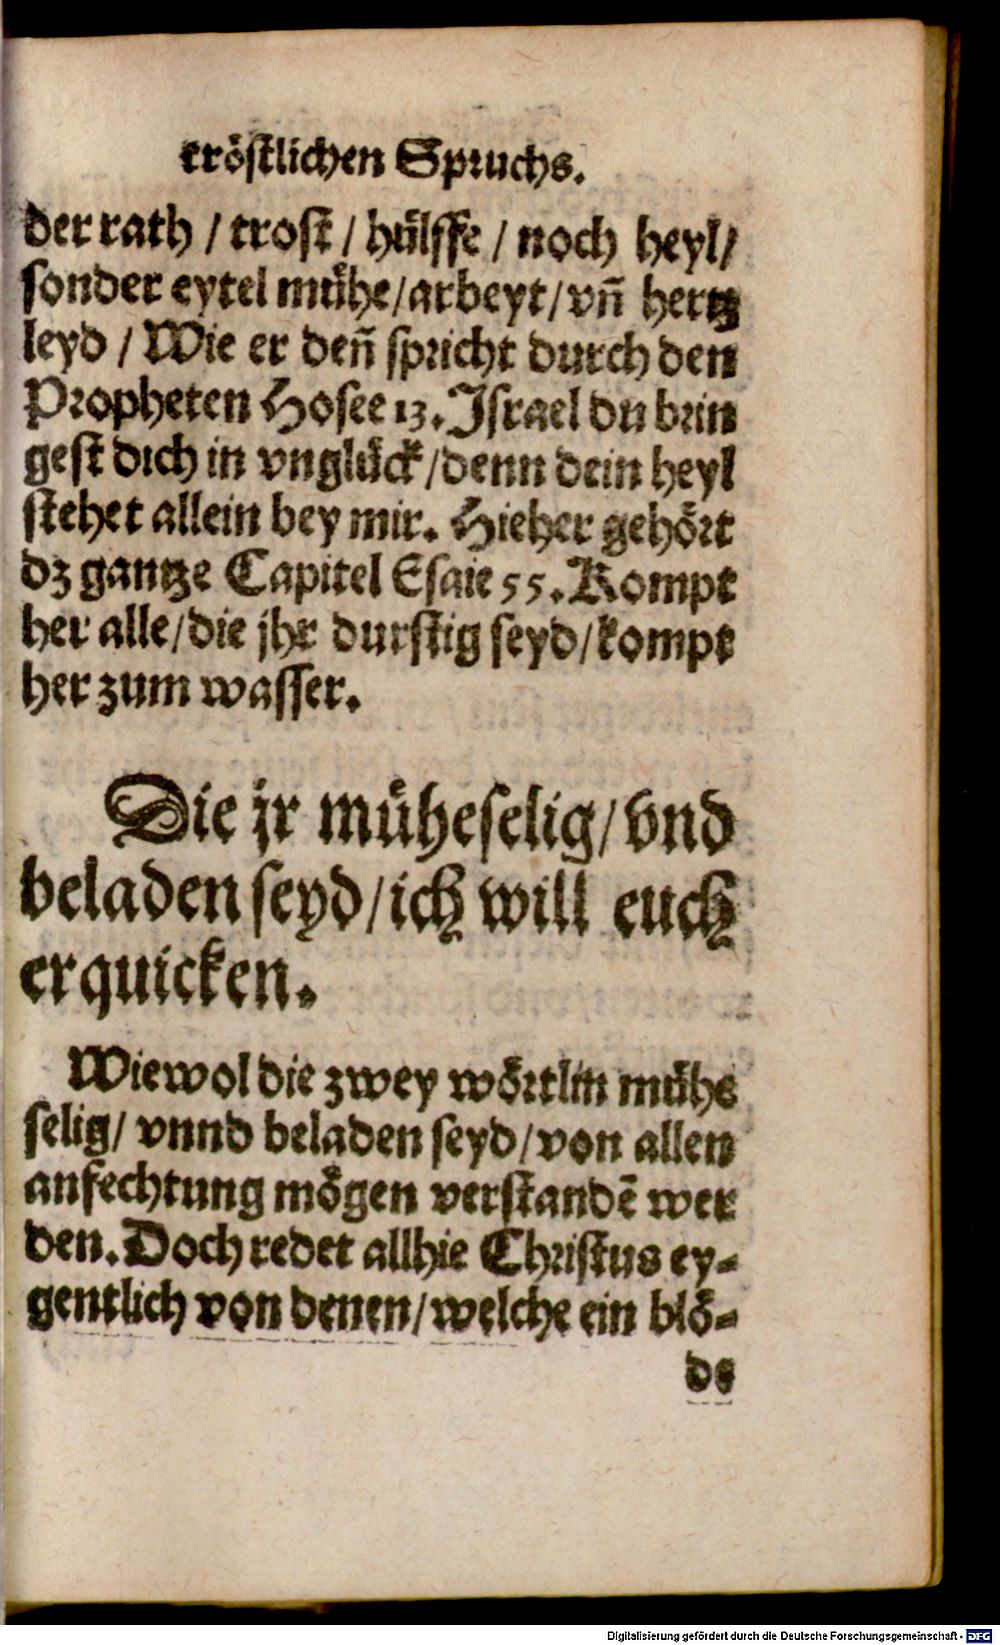 tröstlichen Spruchs.
der rath / trost / hülffe / noch heyl/
sonder eytel mühe/arbeyt/vn̄ hertz
leyd / Wie er den̄ spricht durch den
Propheten Hosee 13. Israel du brin
gest dich in vnglück/denn dein heyl
stehet allein bey mir. Hieher gehört
dz gantze Capitel Esaie 55. Kompt
her alle/die jhr durstig seyd/kompt
her zum wasser.
Die jr müheselig/vnd
beladen seyd/ich will euch
erquicken.
Wiewol die zwey wörtlin mühe
selig/ vnnd beladen seyd/von allen
anfechtung mögen verstandē wer
den. Doch redet allhie Christus ey-
gentlich von denen/welche ein blö-
de
Digitalisierung gefördert durch die Deutsche Forschungsgemeinschaft - DFG